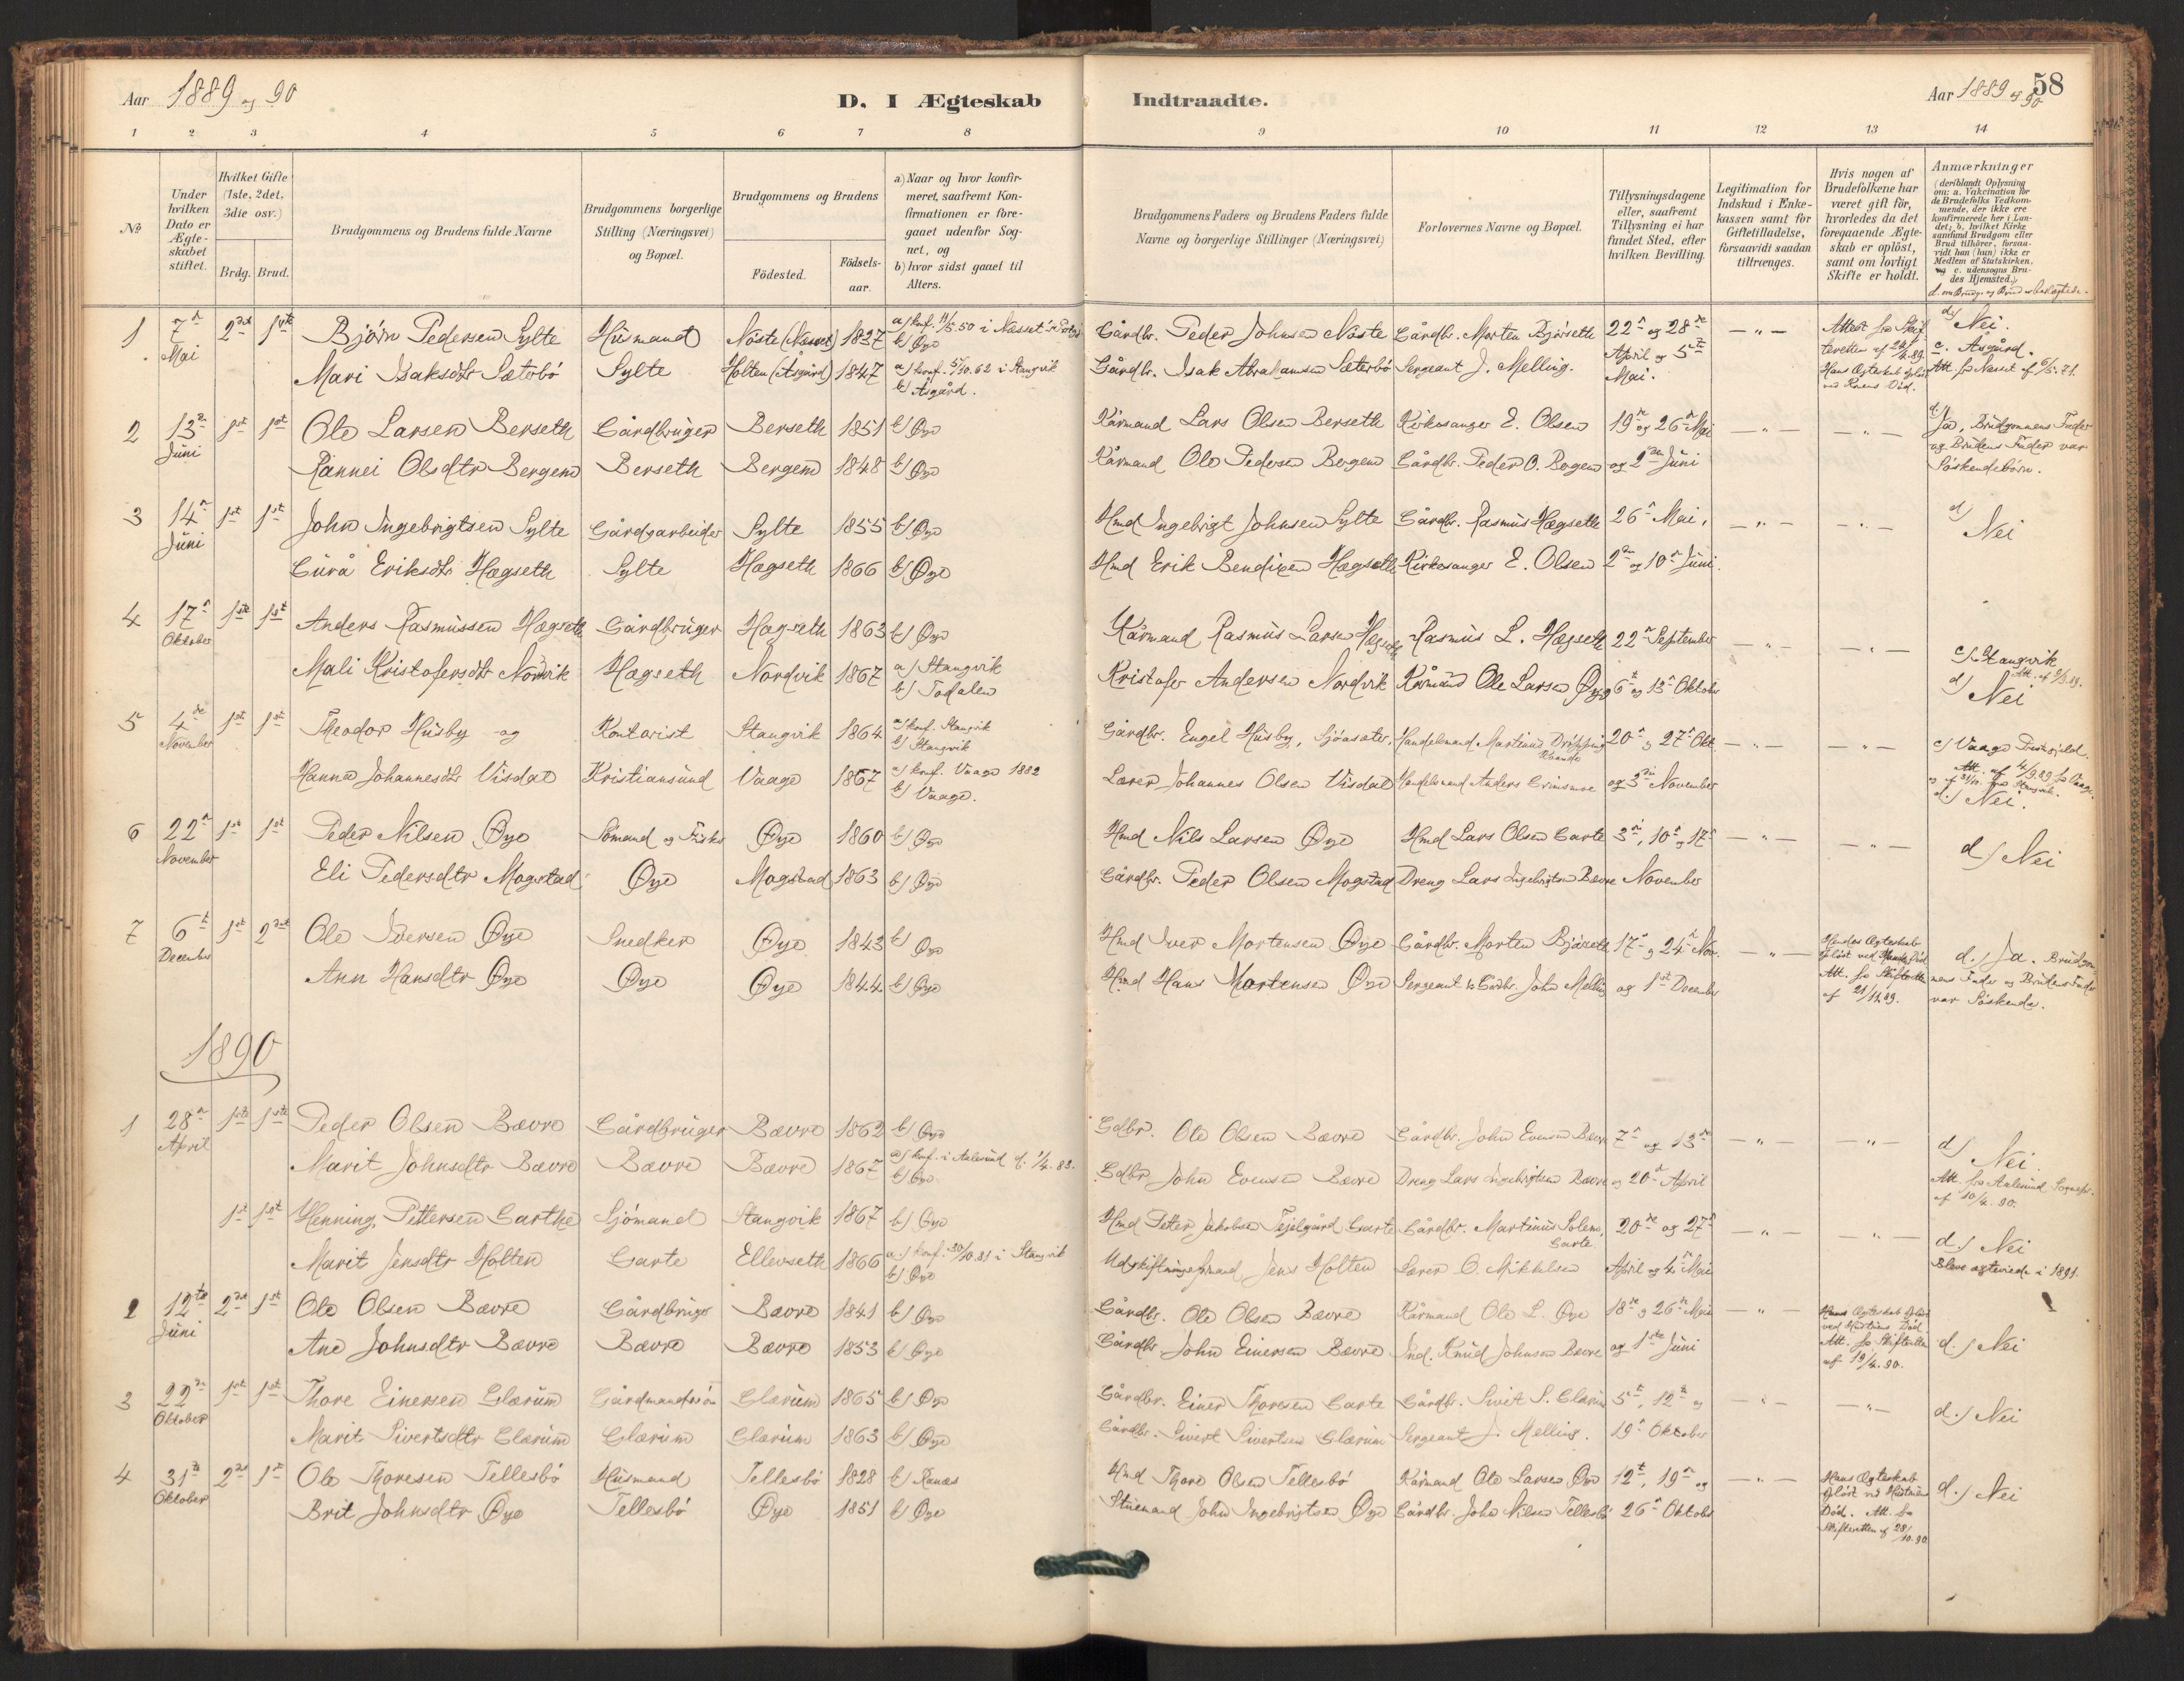 Aar 1889 og 90
D. I Ægteskab
Indtraadte.
Aar 1889 og 90
58
1 2 3 4 5 6 7 8 9 10 11 12 13 14
No
Under hvilken Dato er Ægteskabet stiftet.
Hvilket Gifte (1ste, 2det, 3die osv.)
Brdg. Brud.
Brudgommens og Brudens fulde Navne
Brudgommens borgerlige Stilling (Næringsvei) og Bopæl.
Brudgommens og Brudens
Födested.
Födsels-aar.
a) Naar og hvor konfirmeret, saafremt Konfirmationen er foregaaet udenfor Sognet, og
b) hvor sidst gaaet til Alters.
Brudgommens Faders og Brudens Faders fulde Navne og borgerlige Stillinger (Næringsvei)
Forlovernes Navne og Bopæl.
Tillysningsdagene eller, saafremt Tillysning ei har fundet Sted, efter hvilken Bevilling.
Legitimation for Indskud i Enkekassen samt for Giftetilladelse, forsaavidt saadan tiltrænges.
Hvis nogen af Brudefolkene har været gift för, hvorledes da det foregaaende Ægteskab er oplöst, samt om lovligt Skifte er holdt.
Anmærkninger (deriblandt Oplysning om: a. Vakcination for de Brudefolks Vedkommende, der ikke ere konfirmerede her i Landet; b. hvilket Kirkesamfund Brudgom eller Brud tilhörer, forsaavidt han (hun) ikke er Medlem af Statskirken, og c. udensogns Brudes Hjemsted.)
1 7de Mai 2det 1ste Björn Pedersen Sylte Husmand Nöste (Næsset) 1837 a) konf. 11/5.50 i Næsset b) Øye Gårdbr. Peder Johnsen Nöste Gårdbr. Morten Björseth 22de og 28de d) Nei.
Mari Isaksdtr Sæterbö Sylte Holten (Åsgård) 1847 a) konf. 5/10.62 i Stangvik b) Åsgård. Gårdbr. Isak Abrahamsen Sæterbö Sergeant J. Melling. April og 5te Mai. Hans Ægteskab oplöst ved Konens Död. c. Åsgård. Att. fra Næsset af 6/5.71.
2 13de Juni 1st 1st Ole Larsen Berseth Gårdbruger Berseth 1851 b) Øye Kårmand Lars Olsen Berseth Kirkesanger E. Olsen 19de og 26de Mai d) Ja, Brudgommens Fader
Rannei Olsdtr Bergem Berseth Bergem 1848 b) Øye Kårmand Ole Pedersen Bergem Gårdbr. Peder O. Bergem og 2den Juni og Brudens Fader var Söskendebörn.
3 14de Juni 1st 1st John Ingebrigtsen Sylte Gårdsarbeider Sylte 1855 b) Øye Hmd Ingebrigt Johnsen Sylte Gårdbr. Rasmus Hægseth 26de Mai, d) Nei
Gurå Eriksdtr Hægseth Sylte Hægseth 1866 b) Øye Hmd Erik Bendixen Hægseth Kirkesanger E. Olsen 2den og 10de Juni.
4 17de Oktober 1ste 1st Anders Rasmussen Hægseth Gårdbruger Hægseth 1863 b) Øye Kårmand Rasmus Larsen Hægseth Rasmus L. Hægseth 22de September c) Stangvik
Mali Kristofersdtr Nordvik Hægseth Nordvik 1867 a) Stangvik b) Todalen Kristofer Andersen Nordvik Kårmand Ole Larsen Øye 6te og 13de Oktober d) Nei
5 4de November 1st 1st Theodor Husby og Kontorist Stangvik 1864 a) konf. Stangvik b) Stangvik Gårdbr. Engel Husby, Sjöasæter. Handelsmand Martinus 20de og 27de Okt. c) Vaage Præstegjeld.
Hanna Johannesdtr Visdal Kristiansund Vaage 1867 a) konf. Vaage 1882 b) Vaage. Lærer Johannes Olsen Visdal Handelsmand Anders Grimsmoe og 3die November d) Nei.
6 22de November 1st 1st Peder Nilsen Øye Sömand og Fisker Øye 1860 b) Øye Hmd Nils Larsen Øye Hmd Lars Olsen Garte 3die, 10de og 17de d) Nei
Eli Pedersdtr Mogstad Øye Mogstad 1863 b) Øye Gårdbr. Peder Olsen Mogstad Dreng Lars Ingebrigtsen Bævre November
7 6te December 1st 2det Ole Iversen Øye Snedker Øye 1843 b) Øye Hmd Iver Mortensen Øye Gårdbr. Morten Björseth 17de og 24de Nov. Hendes Ægteskab oplöst ved Mands Död d.) Ja. Brudgom-
Ann Hansdtr Øye Øye Øye 1844 b) Øye Hmd Hans Mortensen Øye Sergeant & Gårdbr. John Melling og 1st December Att. fra Skifteretten af 21/11.89. mens Fader og Brudens Fader var Söskende.
1890
1 28de April 1ste 1ste Peder Olsen Bævre Gårdbruger Bævre 1862 b) Øye Gdbr. Ole Olsen Bævre Gårdbr. John Evensen Bævre 7de og 13de d) Nei.
Marit Johnsdtr Bævre Bævre Bævre 1867 a) konf. i Aalesund d. 1/4.83. b) Øye Gdbr John Evensen Bævre Dreng Lars Ingebrigtsen Bævre og 20de April Att. fra Aalesund Sognepr. af 10/4.90.
1st 1st Henning Pettersen Garthe Sjömand Stangvik 1867 b) Øye Hmd Petter Jakobsen Garte Gårdbr. Martinus Solem, Garte 20de og 27de d.) Nei
Marit Jensdtr Holten Garte Ellevseth 1866 a.) konf. 30/10.81 i Stangvik b) Øye Udskiftningsformand Jens Holten Lærer O. Mikkelsen April og 4de Mai Bleve ægteviede i 1891.
2 12te Juni 2det 1st Ole Olsen Bævre Gårdbruger Bævre 1841 b) Øye Gårdbr. Ole Olsen Bævre Kårmand Ole L. Øye 18de og 26de Mai Hans Ægteskab oplöst ved Hustruens Död
Ane Johnsdtr Bævre Bævre Bævre 1853 b) Øye Gårdbr John Einersen Bævre Ind. Knud Johnsen Bævre og 1ste Juni Att. fra Skifteretten af 19/4.90. d.) Nei
3 22de Oktober 1st 1st Thore Einersen Glærum Gårdmandssön Glærum 1865 b) Øye Gårdbr. Einer Thoresen Garte Gårdbr. Sivert S. Glærum 5te, 12te og d.) Nei
Marit Sivertsdtr Glærum Glærum Glærum 1863 b) Øye Gårdbr. Sivert Sivertsen Glærum Sergeant J. Melling. 19de Oktober
4 31te Oktober 2det 1st Ole Thoresen Tellesbö Husmand Tellesbö 1828 b) Ranæs Hmd Thore Olsen Tellesbö Kårmand Ole Larsen Øye 12te, 19de og Hans Ægteskab oplöst ved Hustruens d.) Nei
Brit Johnsdtr Øye Tellesbö Øye 1851 b) Øye Stuemand John Ingebrigtsen Øye Gårdbr. John Nilsen Tellesbö 26de Oktober Död. Att. fra Skifteretten af 28/10.90.